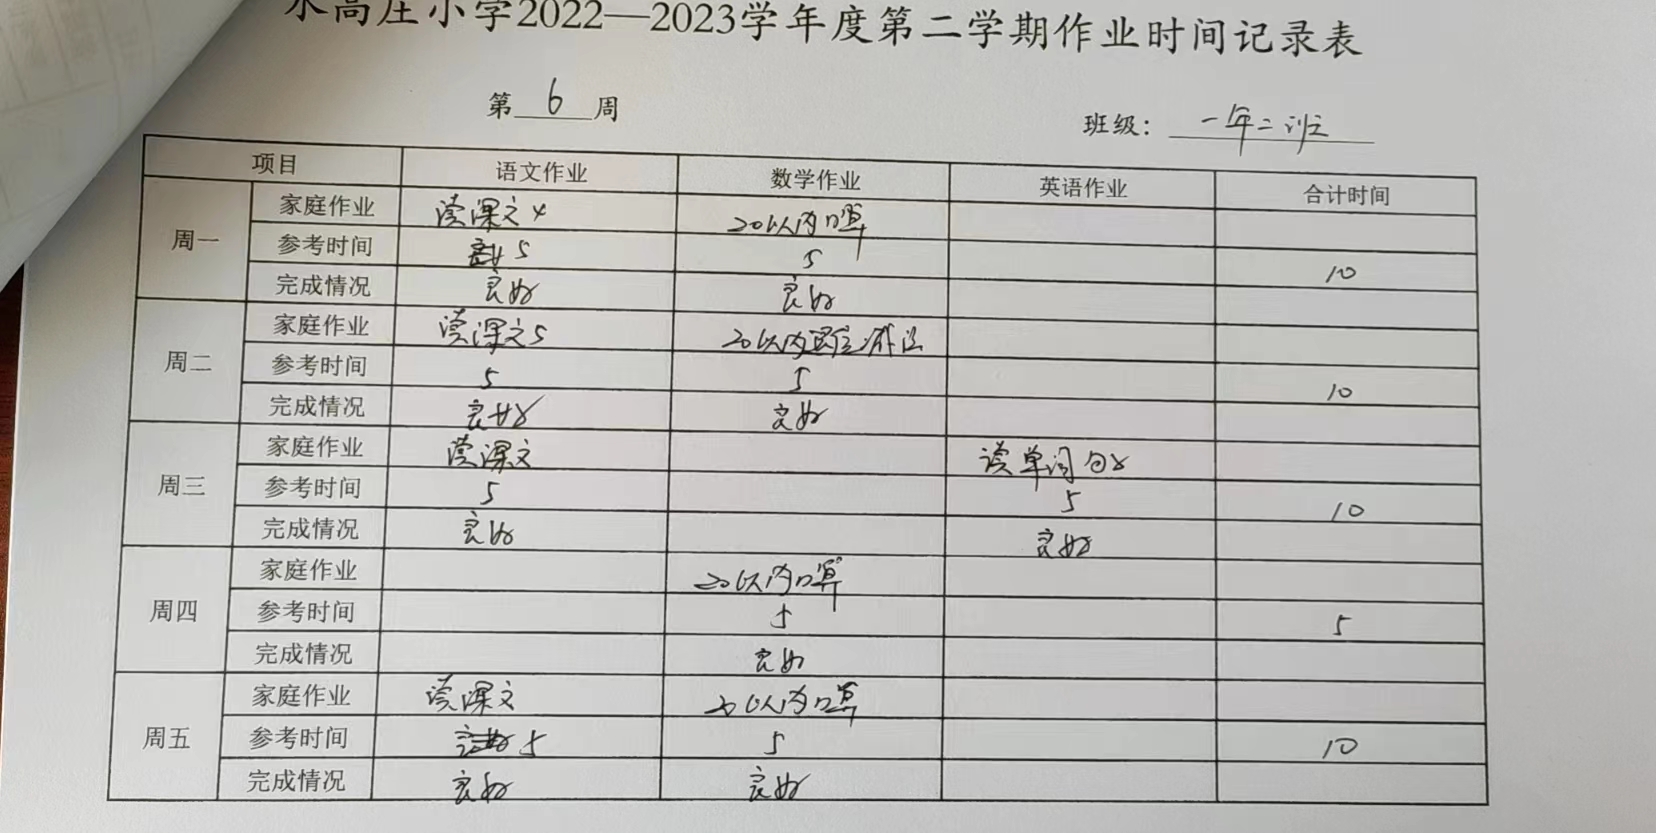 水高庄小学2022—2023学年度第二学期作业时间记录表
第 6 周 班级: 一年二班
项目 语文作业 数学作业 英语作业 合计时间
周一 家庭作业 读课文4 20以内口算
参考时间 5 5 10
完成情况 良好 良好
周二 家庭作业 读课文5 20以内退位减法
参考时间 5 5 10
完成情况 良好 良好
周三 家庭作业 读课文 读单词句子
参考时间 5 5 10
完成情况 良好 良好
周四 家庭作业 20以内口算
参考时间 5 5
完成情况 良好
周五 家庭作业 读课文 20以内口算
参考时间 5 5 10
完成情况 良好 良好